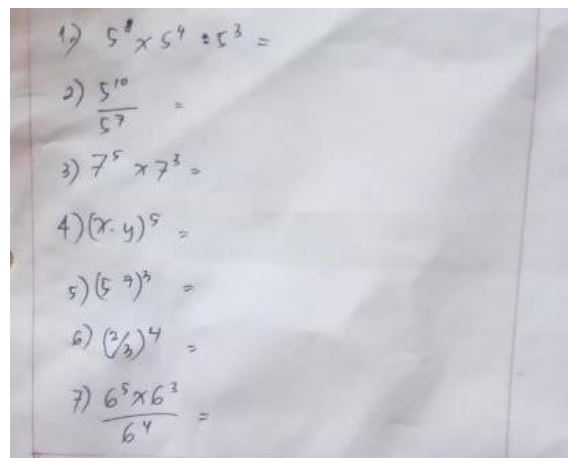 1.) 5⁸ x 5⁴ : 5³ =
2) 5¹⁰/5⁷ =
3) 7⁵ x 7³ =
4) (x. y)⁵ =
5) (5 ⁴)³ =
6) (2/3)⁴ =
7) 6⁵ x 6³/6⁴ =